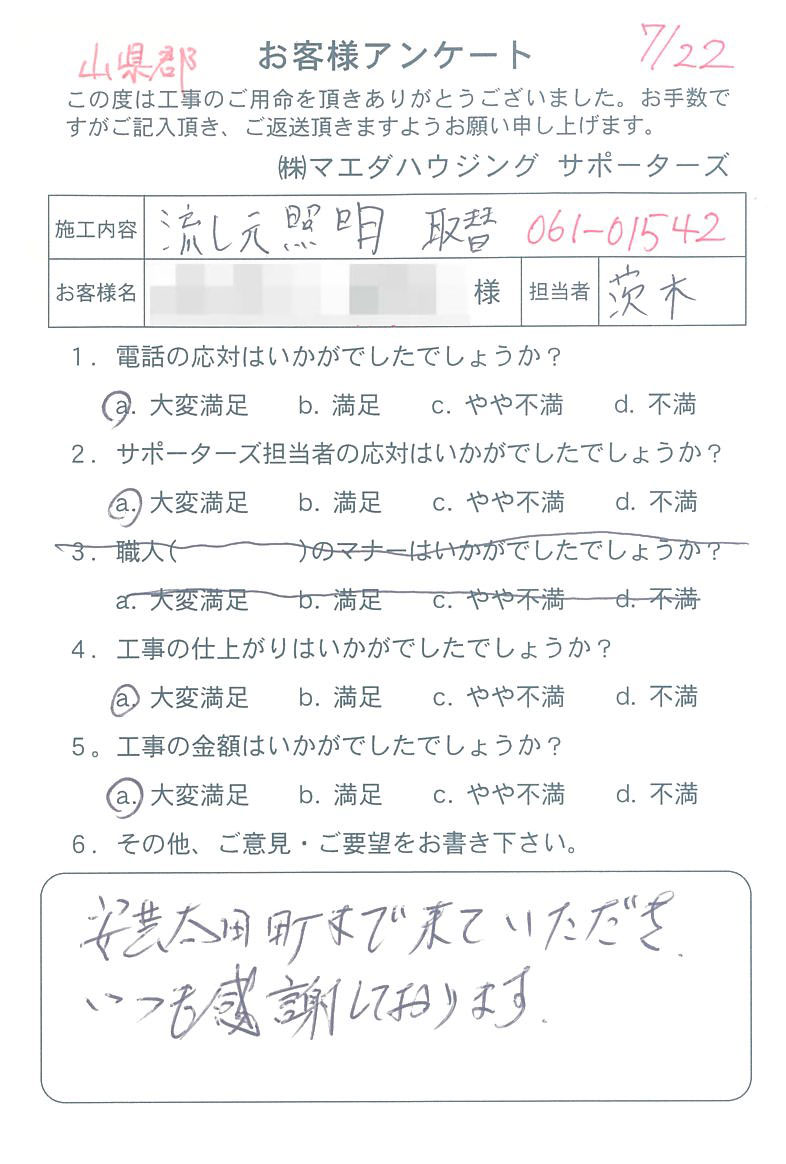 山県郡 お客様アンケート 7/22
この度は工事のご用命を頂きありがとうございました。お手数で
すがご記入頂き、ご返送頂きますようお願い申し上げます。
㈱マエダハウジング サポーターズ
施工内容 流し元照明 取替 061-01542
お客様名 様 担当者 茨木
1. 電話の応対はいかがでしたでしょうか?
a. 大変満足 b. 満足 c. やや不満 d. 不満
2. サポーターズ担当者の応対はいかがでしたでしょうか?
a. 大変満足 b. 満足 c. やや不満 d. 不満
3. 職人( )のマナーはいかがでしたでしょうか?
a. 大変満足 b. 満足 c. やや不満 d. 不満
4. 工事の仕上がりはいかがでしたでしょうか?
a. 大変満足 b. 満足 c. やや不満 d. 不満
5。工事の金額はいかがでしたでしょうか?
a. 大変満足 b. 満足 c. やや不満 d. 不満
6. その他、ご意見・ご要望をお書き下さい。
安芸太田町まで来ていただき、
いつも感謝しております.